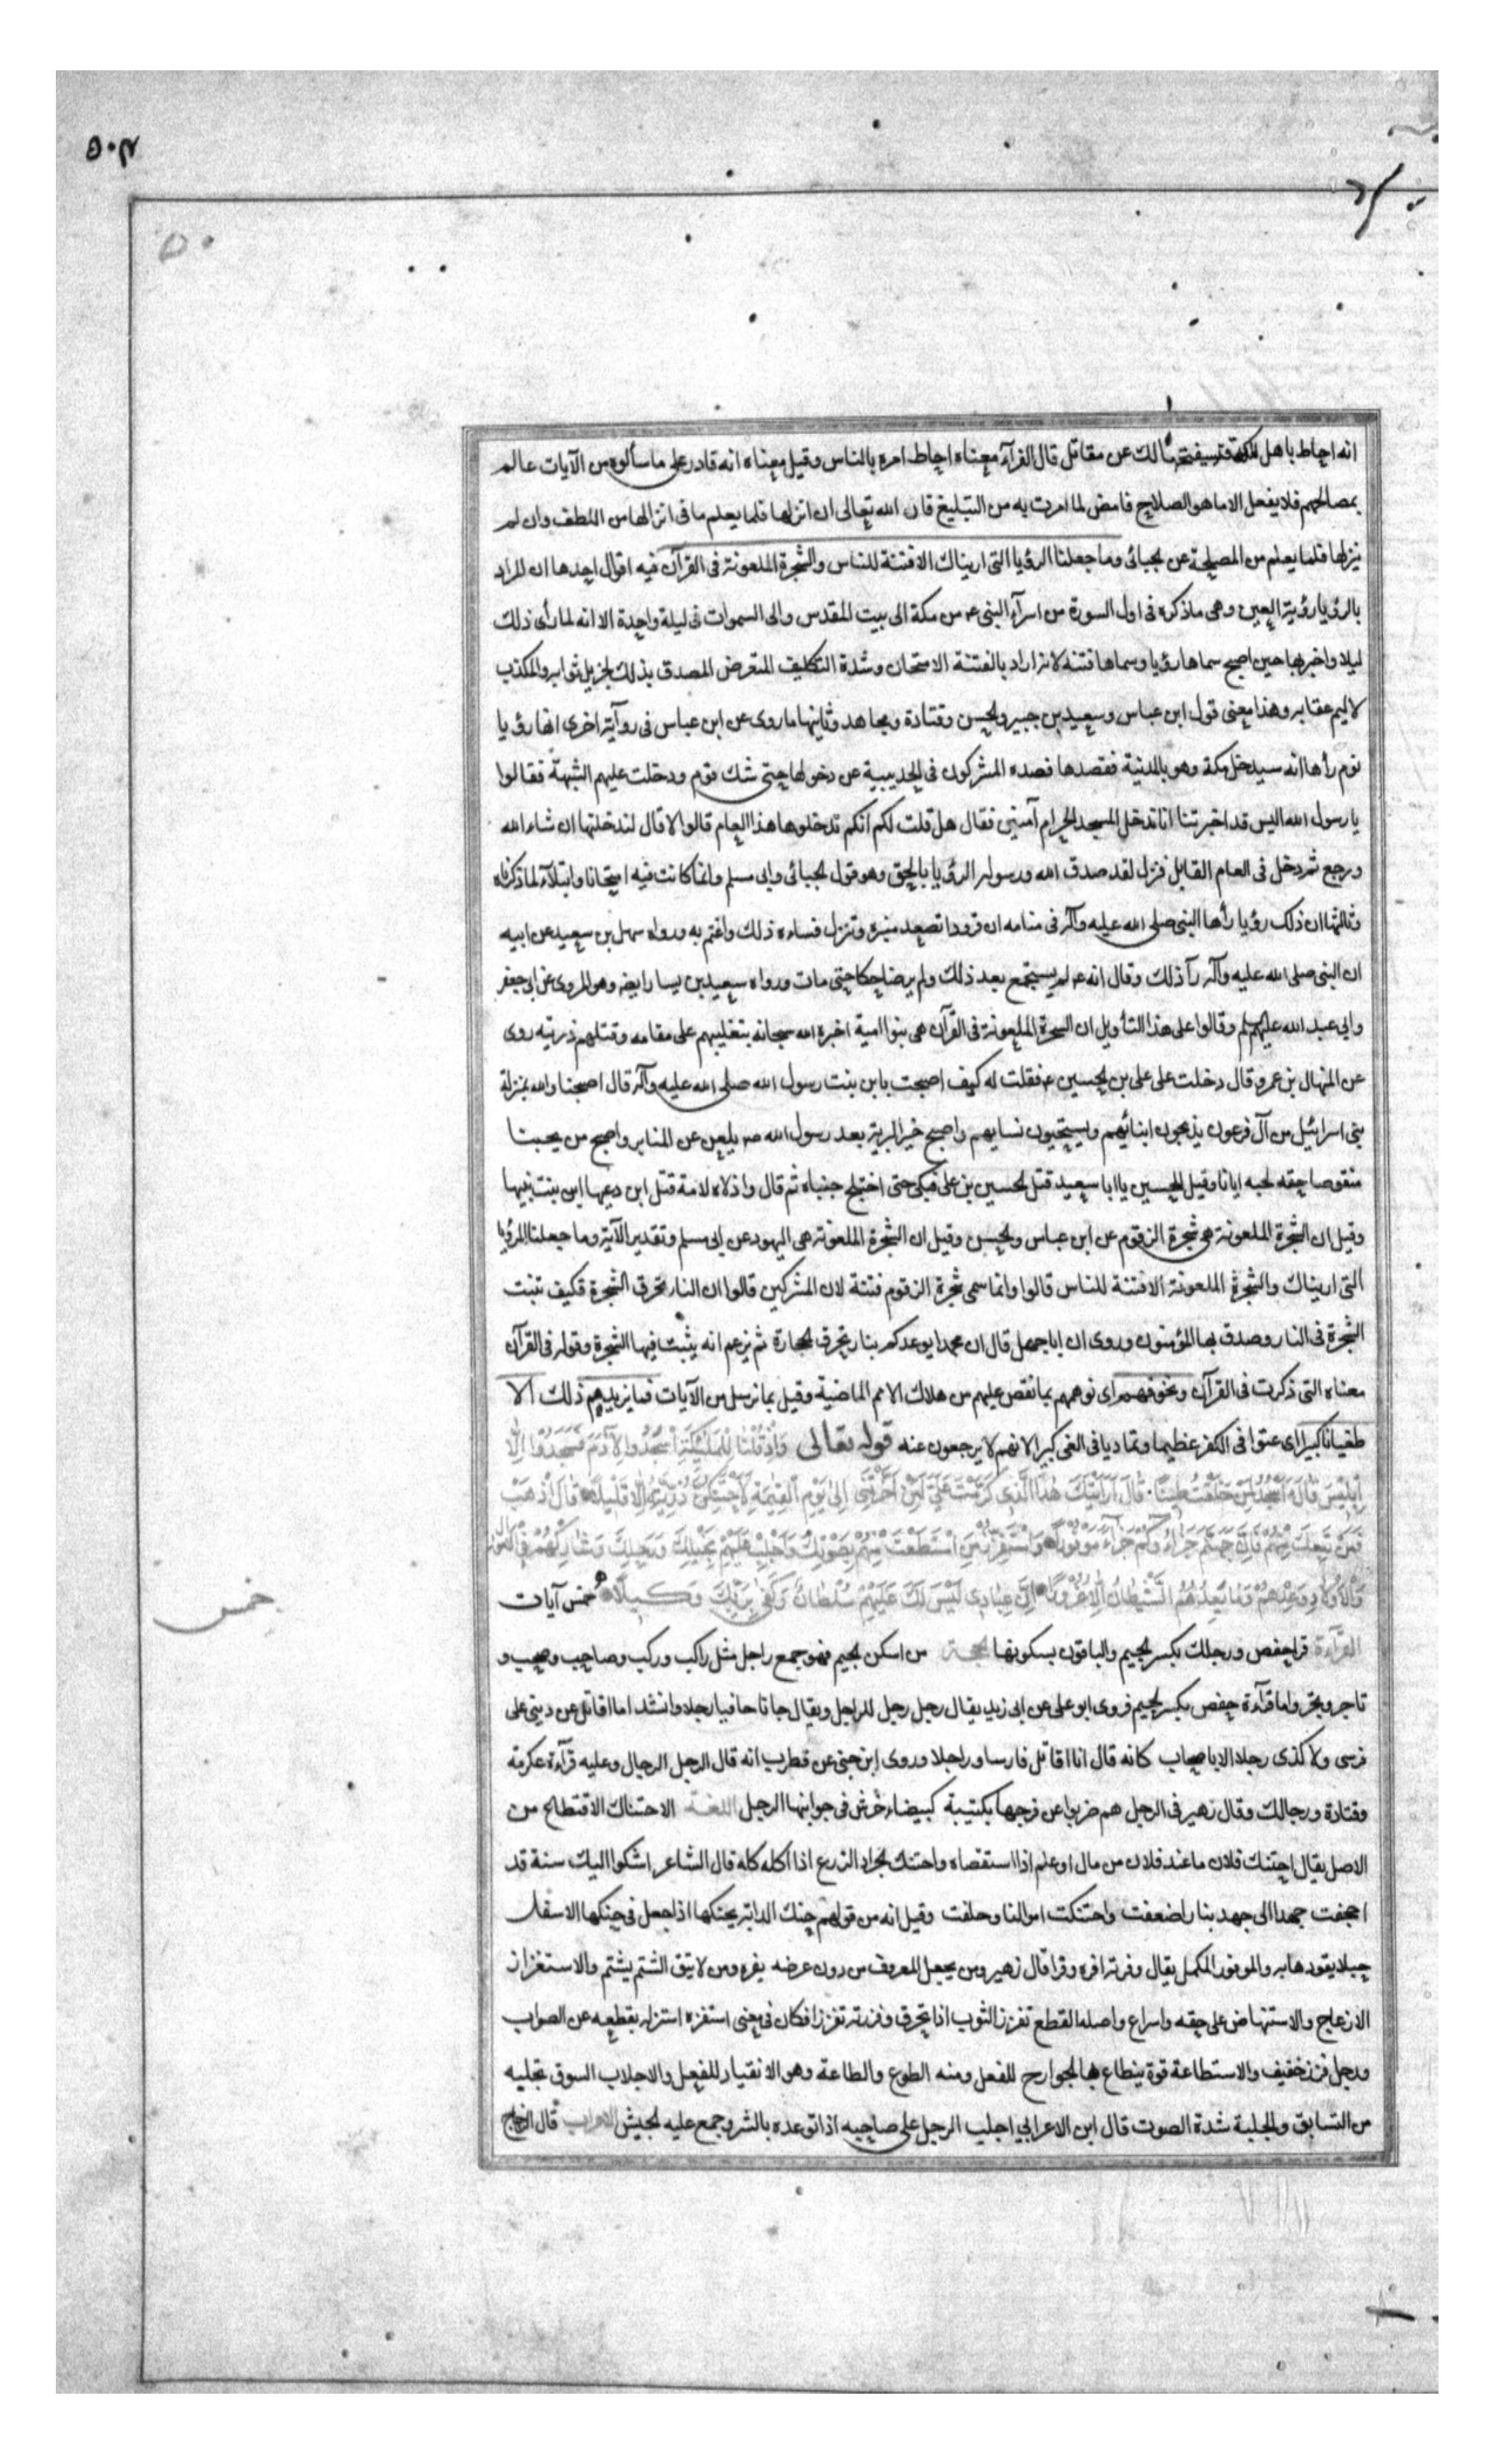 ٥٠٤
٥٠
انه احاط باهل مكة فسيفتحها لك عن مقاتل قال الفرآء معناه احاط امره بالناس وقيل معناه انه قادر على ما سألوه من الآيات عالم
بمصالحهم فلا يفعل الا ما هو الصلاح فامض لما امرت به من التبليغ فان الله تعالى ان انزلها فلما يعلم ما فى انزالها من اللطف وان لم
ينزلها فلما يعلم من المصلحة عن الجبائى وما جعلنا الرؤيا التى اريناك الا فتنة للناس والشجرة الملعونة فى القرآن فيه اقوال احدها ان المراد
بالرؤيا رؤية العين وهى ما ذكره فى اول السورة من اسرآء النبى ع من مكة الى بيت المقدس والى السموات فى ليلة واحدة الا انه لما رأى ذلك
ليلا واخبر بها حين اصبح سماها رؤيا وسماها فتنة لانه اراد بالفتنة الامتحان وشدة التكليف المتعرض المصدق بذلك لجزيل ثوابه والمكذب
لاليم عقابه وهذا معنى قول ابن عباس وسعيد بن جبير والحسن وقتادة ومجاهد وثانيها ما روى عن ابن عباس فى رواية اخرى انها رؤيا
نوم رأها انه سيدخل مكة وهو بالمدنية فقصدها فصده المشركون فى الحديبية عن دخولها حتى شك قوم ودخلت عليهم الشبهة فقالوا
يا رسول الله اليس قد اخبرتنا انا ندخل المسجد الحرام آمنين فقال هل قلت لكم انكم تدخلوها هذا العام قالوا لا قال لندخلنها ان شاء الله
ورجع ثم دخل فى العام القابل فنزل لقد صدق الله ورسوله الرؤيا بالحق وهو قول الجبائى وابى مسلم وانما كانت فيه امتحانا وابتلآء لما ذكرناه
وثالثها ان ذلك رؤيا رأها النبى صلى الله عليه وآله فى منامه ان قرودا تصعد منبره وتنزل فساءه ذلك واغتم به ورواه سهل بن سعيد عن ابيه
ان النبى صلى الله عليه وآله رآ ذلك وقال انه ع لم يستجمع بعد ذلك ولم ير ضاحكا حتى مات ورواه سعيد بن يسار ايضه وهو المروى عن ابى جعفر
وابى عبد الله عليهم سلم وقالوا على هذا التأويل ان الشجرة الملعونة فى القرآن هى بنوا امية اخبره الله سبحانه بتغلبهم على مقامه وقتلهم ذريته روى
عن المنهال بن عمرو قال دخلت على على بن الحسين ع فقلت له كيف اصبحت يا بن بنت رسول الله صلى الله عليه وآله قال اصبحنا والله بمنزلة
بنى اسرائيل من آل فرعون يذبحون ابنائهم ويستحيون نسايهم واصبح خير البرية بعد رسول الله ص يلعن عن المنابر واصبح من يحبنا
منقوصا حقه لحبه ايانا وقيل للحسين يا ابا سعيد قتل الحسين بن على فبكى حتى اختلج جنباه ثم قال واذلاه لامة قتل ابن دعيها ابن بنت نبيها
وقيل ان الشجرة الملعونة هى شجرة الزقوم عن ابن عباس والحسن وقيل ان الشجرة الملعونة هى اليهود عن ابى مسلم وتقدير الآية وما جعلنا الرؤيا
التى اريناك والشجرة الملعونة الا فتنة للناس قالوا وانما سمى شجرة الزقوم فتنة لان المشركين قالوا ان النار تحرق الشجرة فكيف تنبت
الشجرة فى النار وصدق بها المؤمنون وروى ان ابا جهل قال ان محمدا يوعدكم بنار تحرق الحجارة ثم يزعم انه ينبت فيها الشجرة وقوله فى القرآن
معناه التى ذكرت فى القرآن ونخوفهم اى نوهمهم بما نقص عليهم من هلاك الامم الماضية وقيل بما نرسل من الآيات فما يزيدهم ذلك الا
طغيانا كبيرا اى عتوا فى الكفر عظيما وتماديا فى الغى كبيرا لانهم لا يرجعون عنه قوله تعالى وَاِذْ قُلْنَا لِلْمَلٰئِكَةِ اسْجُدُوا لِآدَمَ فَسَجَدُوا اِلَّا
اِبْلِيْسَ قَالَ ءَاَسْجُدُ لِمَنْ خَلَقْتَ طِيْنًا قَالَ اَرَاَيْتَكَ هٰذَا الَّذِى كَرَّمْتَ عَلَيَّ لَئِنْ اَخَّرْتَنِ اِلٰى يَوْمِ الْقِيٰمَةِ لَاَحْتَنِكَنَّ ذُرِّيَّتَهُ اِلَّا قَلِيْلًا قَالَ اذْهَبْ
فَمَنْ تَبِعَكَ مِنْهُمْ فَاِنَّ جَهَنَّمَ جَزَاؤُكُمْ جَزَاءً مَوْفُوْرًا وَاسْتَفْزِزْ مَنِ اسْتَطَعْتَ مِنْهُمْ بِصَوْتِكَ وَاَجْلِبْ عَلَيْهِمْ بِخَيْلِكَ وَرَجِلِكَ وَشَارِكْهُمْ فِى الْاَمْوَالِ
وَالْاَوْلَادِ وَعِدْهُمْ وَمَا يَعِدُهُمُ الشَّيْطَانُ اِلَّا غُرُوْرًا اِنَّ عِبَادِى لَيْسَ لَكَ عَلَيْهِمْ سُلْطَانٌ وَكَفٰى بِرَبِّكَ وَكِيلًا خمس آيات
خمس
القرآءة قرا حفص ورجلك بكسر الجيم والباقون بسكونها الحجة من اسكن الجيم فهو جمع راجل مثل راكب وركب وصاحب وصحب و
تاجر وتجر واما قرآءة حفص بكسر الجيم فروى ابو على عن ابى زيد يقال رجل رجل للراجل ويقال جانا حافيا رجلا وانشد اما اقاتل عن دينى على
فرسى ولا كذى رجلا الا باصحاب كانه قال انا اقاتل فارسا وراجلا وروى ابن جنى عن قطرب انه قال الرجل الرجال وعليه قرآءة عكرمة
وقتادة ورجالك وقال زهير فى الرجل هم ضربوا عن فرجها بكتيبة كبيضاء خرش فى جوانبها الرجل اللغة الاحتناك الاقتطاع من
الاصل يقال احتنك فلان ما عند فلان من مال او علم اذا استقصاه واحتنك الجراد الزرع اذا اكله كله قال الشاعر اشكوا اليك سنة قد
اجحفت جهدا الى جهد بنا راضعفت واحتنكت اموالنا وحلفت وقيل انه من قولهم حنك الدابة يحنكها اذا جعل فى حنكها الاسفل
حبلا يقودها به والموفور المكمل يقال وفرته افره وفرا قال زهير ومن يجعل المعروف من دون عرضه يفره ومن لا يتق الشتم يشتم والاستفزاز
الازعاج والاستنهاض على خفه واسراع واصله القطع تفزز الثوب اذا تخرق وفززته تفزيزا فكان فى معنى استفزه استزله بقطعه عن الصواب
ورجل فزز خفيف والاستطاعة قوة ينطاع بها الجوارح للفعل ومنه الطوع والطاعة وهو الانقياد للفعل والاجلاب السوق بجلبه
من السابق والجلبة شدة الصوت قال ابن الاعرابى اجلب الرجل على صاحبه اذا توعده بالشر وجمع عليه الجيش الاعراب قال الزجاج